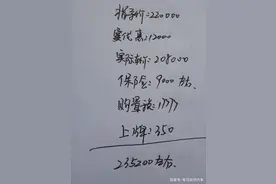 指导价:220000
实优惠:12000
实际车价:208000
保险:9000左右
购置税:17777
上牌:350
235200左右.